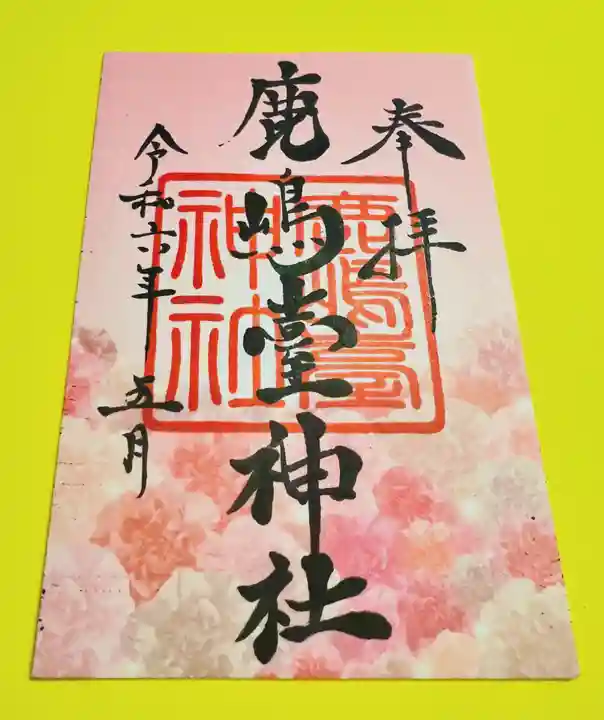 奉拝
鹿嶋臺神社
令和六年五月
鹿嶋臺
神社